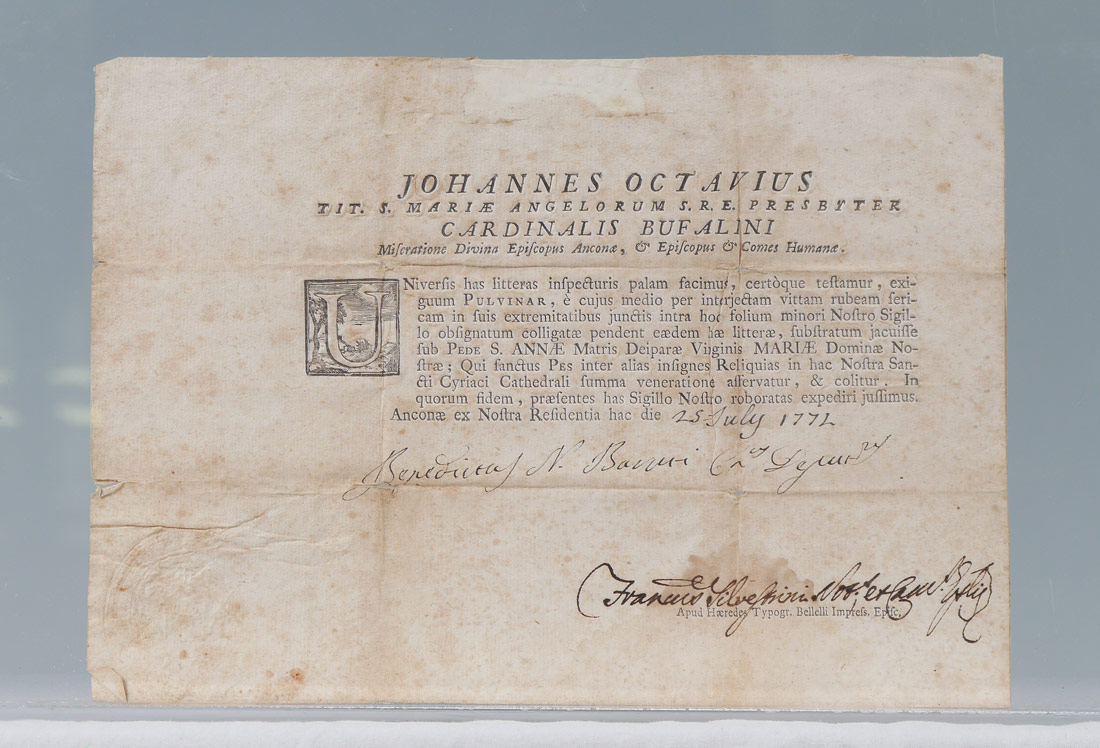 JOHANNES OCTAVIUS
TIT. S. MARIÆ ANGELORUM S.R.E. PRESBYTER
CARDINALIS BUFALINI
Miſeratione Divina Epiſcopus Anconæ, & Epiſcopus & Comes Humanæ.
UNiverſis has litteras inſpecturis palam facimus, certòque teſtamur, exi-
guum PULVINAR, è cujus medio per interjectam vittam rubeam ſeri-
cam in ſuis extremitatibus junctis intra hoc folium minori Noſtro Sigil-
lo obſignatum colligatæ pendent eædem hæ litteræ, ſubſtratum jacuiſſe
ſub PEDE S. ANNÆ Matris Deiparæ Virginis MARIÆ Dominæ No-
ſtræ; Qui ſanctus PES inter alias inſignes Reliquias in hac Noſtra San-
cti Cyriaci Cathedrali ſumma veneratione aſſervatur, & colitur. In
quorum fidem, præſentes has Sigillo Noſtro roboratas expediri juſſimus.
Anconæ ex Noſtra Reſidentia hac die 25 July 1772
Benedictus N.
Silvestrini
Apud Hæredes Typogr. Bellelli Impreſs. Epiſc.